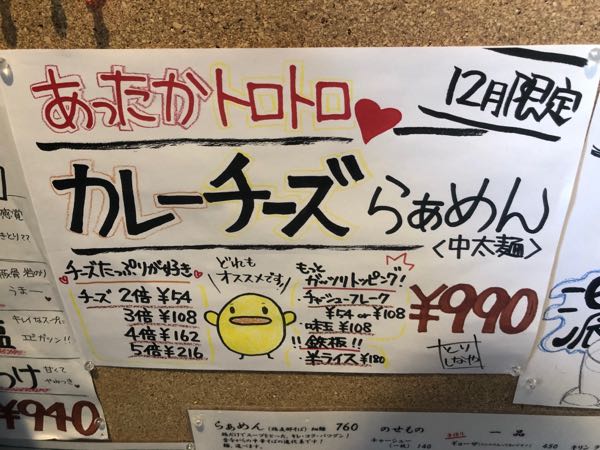 あったかトロトロ♥
12月限定
カレーチーズ らぁめん
<中太麺>
♥チーズたっぷりが好き♥
チーズ 2倍 ¥54
3倍 ¥108
4倍 ¥162
5倍 ¥216
どれも
オススメです!
もっと
ガッツリトッピング!
チャーシューフレーク
¥54 or ¥108
味玉 ¥108
!!鉄板!!
半ライス ¥180
¥990
とり
しなや
エビガツン!!
甘くて
¥940
らぁめん
細麺 760
のせもの
チャーシュー
140
一品
ギョーザ
450